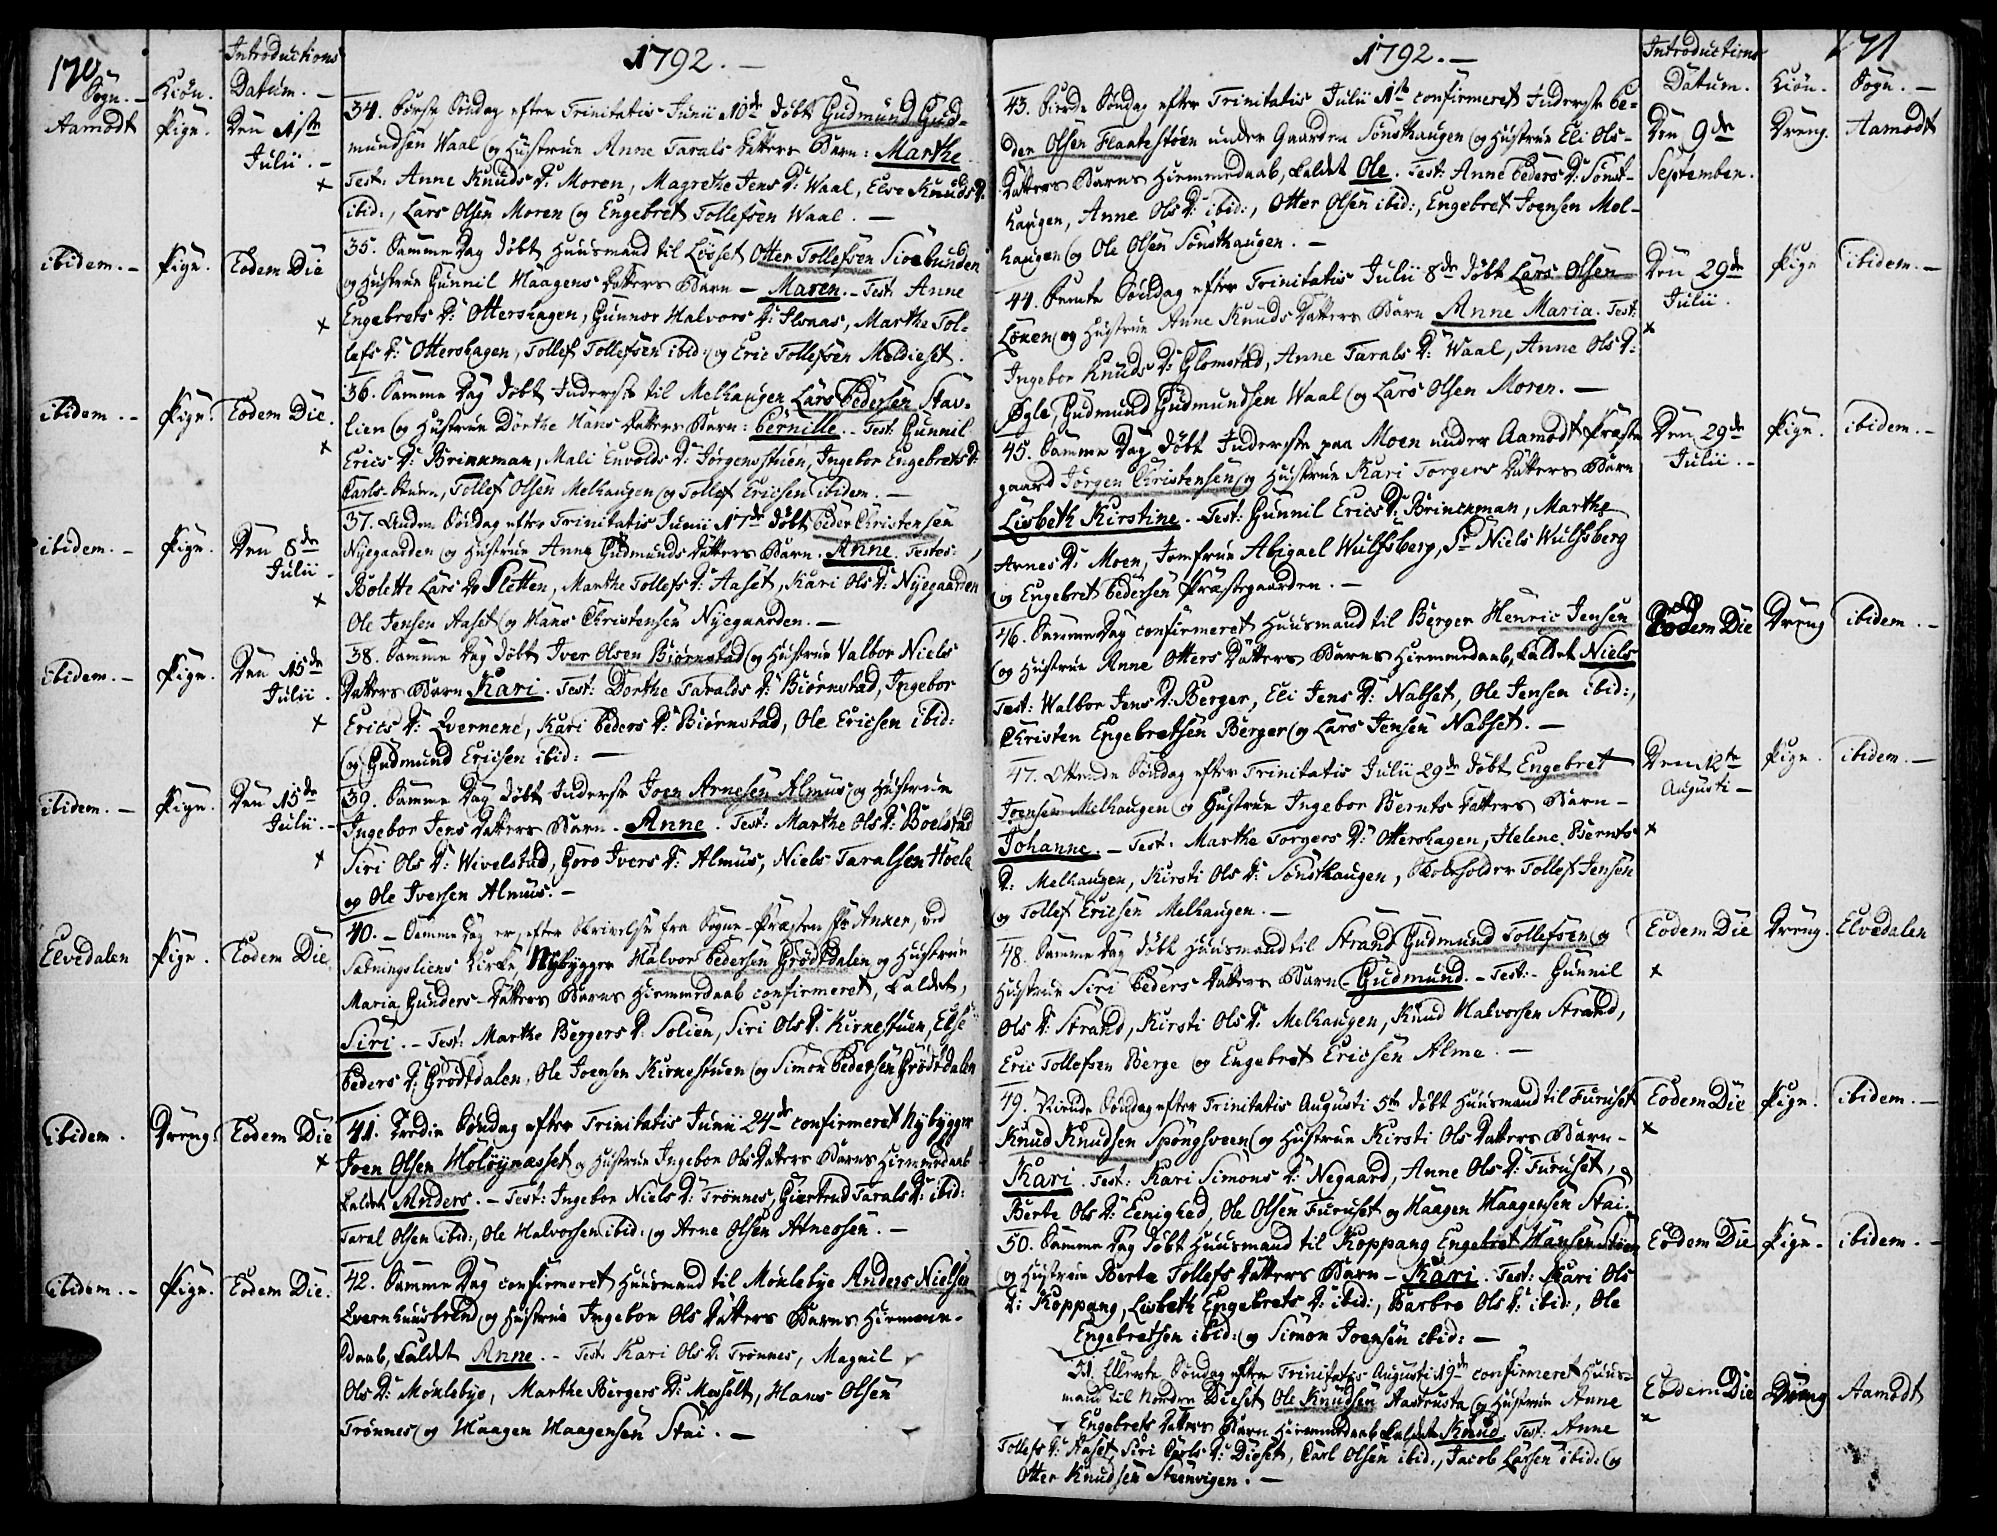 170
1792.—
Introductions
Sogn.— Kiön. Datum.—
34. Første Söndag efter Trinitatis Junii 10de döbt Gudmund Gud-
Aamodt Pige. Den 1ste
mundsen Waal og Hustrue Anne Tarals Datters Barn: Marthe
Julii.—
Test: Anne Knuds D: Moren, Magrethe Jens D: Waal, Elve Knuds D:
ibid:, Lars Olsen Moren og Engebret Tollefsen Waal.—
35. Samme Dag döbt Huusmand til Löset Otter Tollefsen Sivebunden
ibidem.— Pige. Eodem Die
og Hustrue Gunnil Haagens Datters Barn — Maren.— Test: Anne
Engebrets D: Ottershagen, Gunnor Halvors D: Ilvaas, Marthe Tol-
lefs D: Ottershagen, Tollef Tollefsen ibid: og Eric Tollefsen Meldieset.
36. Samme Dag döbt Inderste til Melhaugen Lars Pedersen Stav-
ibidem.— Pige. Eodem Die.
lien og Hustrue Dorthe Hans Datters Barn: Pernille.— Test: Gunnil
Erics D: Brinkman, Mali Envolds D: Jörgensstuen, Ingebor Engebrets D:
Carls-Stuen, Tollef Olsen Melhaugen og Tollef Ericsen ibidem.—
37. Anden Söndag efter Trinitatis Junii 17de döbt Peder Christensen
ibidem.— Pige. Den 8de
Nyegaarden og Hustrue Anne Gudmunds Datters Barn. Anne. Testes:
Julii—
Bolette Lars D: Sletten, Marthe Tollefs D: Aaset, Kari Ols D: Nyegaarden
Ole Jensen Aaset og Hans Christensen Nyegaarden.—
38. Samme Dag döbt Iver Olsen Biörnstad og Hustrue Valbor Niels
ibidem.— Pige. Den 15de
Datters Barn Kari. Test: Dorthe Taralds D: Biörnstad, Ingebor
Julii.
Erics D: Qvernene, Kari Peders D: Biörnstad, Ole Ericsen ibid:
og Gudmund Ericsen ibid:—
39. Samme Dag döbt Inderste Joen Arnesen Almus og Hustrue
ibidem.— Pige. Den 15de
Ingebor Jens Datters Barn. Anne. Test: Marthe Ols D: Boelstad
Julii.—
Siri Ols D: Wivelstad, Goro Ivers D: Almus, Niels Taralsen Hoele
og Ole Iversen Almus.—
40.— Samme Dag er, efter Skrivelse fra Sogne-Præsten Hr Anker, ved
Elvedalen Pige. Eodem Die
Sætningsliens Kirke, Nybygger Halvor Pedersen Grödtdalen og Hustrue
Maria Gunders-Datters Barns Hiemmedaab confirmeret, kaldet,
Siri.— Test: Marthe Bergers D: Solien, Siri Ols D: Kirnestuen, Else
Peders D: Grödtdalen, Ole Joensen Kirnestuen og Simon Pedersen Grödtdalen
41. Tredie Söndag efter Trinitatis Junii 24de confirmeret Nybygger
ibidem. Dreng. Eodem Die
Joen Olsen Holöynæsset og Hustrue Ingebor Ols Datters Barns Hiemmedaab
kaldet Anders.— Test: Ingebor Niels D: Trönnes, Giertrud Tarals D: ibid:
Taral Olsen ibid:, Ole Halvorsen ibid: og Arne Olsen Atneosen.—
42. Samme Dag confirmeret Huusmand til Möklebye Anders Nielsen
ibidem.— Pige. Eodem Die.
Qvernhuusbrend og Hustrue Ingebor Ols Datters Barns Hiemme-
daab, kaldet Anne.— Test: Kari Ols D: Trönnes, Magnil
Ols D: Möklebye, Marthe Bergers D: Messelt, Hans Olsen
Trönnes og Haagen Haagensen Stai.—
171
1792.—
Introductions
Datum. Kiön. Sogn.—
43. Fierde Söndag efter Trinitatis Julii 1ste confirmeret Inderste Pe-
Den 9de Dreng. Aamodt
der Olsen Flaatestöen under Gaarden Sönsthaugen og Hustrue Eli Ols-
September.
Datters Barns Hiemmedaab, kaldet Ole. Test: Anne Peders D: Sönst-
haugen, Anne Ols D: ibid:, Otter Olsen ibid:, Engebret Joensen Mel-
haugen og Ole Olsen Sönsthaugen.—
44. Femte Söndag efter Trinitatis Julii 8de döbt Lars Olsen
Den 29de Pige ibidem.—
Julii.
Löken og Hustrue Anne Knuds Datters Barn Anne Maria. Test:
Ingebor Knuds D: Glomstad, Anne Tarals D: Waal, Anne Ols D:
Øgle, Gudmund Gudmundsen Waal og Lars Olsen Moren.—
45. Samme Dag döbt Inderste paa Moen under Aamodt Præste
Den 29de Pige. ibidem.—
gaard Jörgen Christensen og Hustrue Kari Torgers Datters Barn
Julii.—
Lisbeth Kirstine.— Test: Gunnil Erics D: Brinckman, Marthe
Arnes D: Moen, Jomfrue Abigael Wulfsberg, Sr Niels Wulfsberg
og Engebret Pedersen Præstegaarden.—
46. Samme Dag confirmeret Huusmand til Berger Henric Jensen
Eodem Die Dreng ibidem.—
og Hustrue Anne Otters Datters Barns Hiemmedaab, kaldet Niels
Test: Walbor Jens D: Berger, Eli Jens D: Nabset, Ole Jensen ibid:,
Christen Engebretsen Berger og Lars Jensen Nabset.—
47. Ottende Söndag efter Trinitatis Julii 29de döbt Engebret
Den 12te Pige. ibidem.—
Augusti—
Joensen Melhaugen og Hustrue Ingebor Bernts Datters Barn—
Johanne.— Test: Marthe Torgers D: Ottershagen, Helene Bernts
D: Melhaugen, Kirsti Ols D: Sönsthaugen, Skoleholder Tollef Jensen
og Tollef Ericsen Melhaugen.—
48. Samme Dag döbt Huusmand til Strand Gudmund Tollefsen og
Eodem Die Dreng. Elvedalen
Hustrue Siri Peders Datters Barn—Gudmund.—Test:— Gunnil
Ols D: Strand, Kirsti Ols D: Melhaugen, Knud Halvorsen Strand,
Eric Tollefsen Berge og Engebret Ericsen Alme.—
49. Niende Söndag efter Trinitatis Augusti 5te döbt Huusmand til Furuset
Eodem Die Pige. ibidem.—
Knud Knudsen Spöngsveen og Hustrue Kirsti Ols Datters Barn—
Kari. Test: Kari Simons D: Negaard, Anne Ols D: Furuset,
Berte Ols D: Eenighed, Ole Olsen Furuset og Haagen Haagensen Stai.
50. Samme Dag döbt Huusmand til Koppang Engebret Hansen Stöen
Eodem Die Pige.— ibidem.—
og Hustrue Berte Tollefs Datters Barn— Kari. Test: Kari Ols
D: Koppang, Lisbeth Engebrets D: ibid:, Barbro Ols D: ibid:, Ole
Engebretsen ibid: og Simon Joensen ibid:—
51. Ellevte Söndag efter Trinitatis Augusti 19de confirmeret Huus-
Eodem Die Dreng Aamodt
mand til Nordre Dieset Ole Knudsen Aastrusta og Hustrue Anne
Engebrets Datters Barn Hiemmedaab kaldet Knud. Test: Anne
Tollefs D: Aaset, Siri Carls D: Dieset, Carl Olsen ibid:, Jacob Larsen ibid: og
Otter Knudsen Steenvigen.—